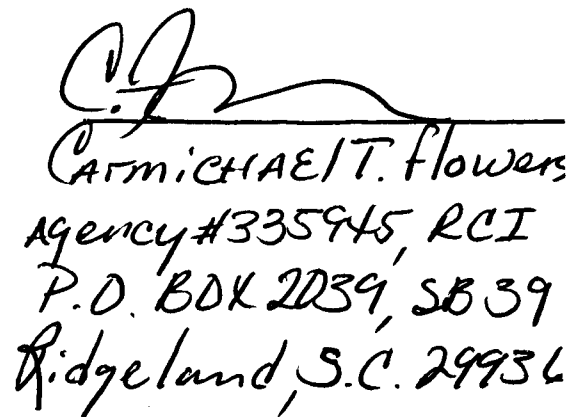 C. F
CArmiCHAEl T. flowers
Agency #335945, RCI
P.O. BOX 2039, SB 39
Ridgeland, S.C. 29936